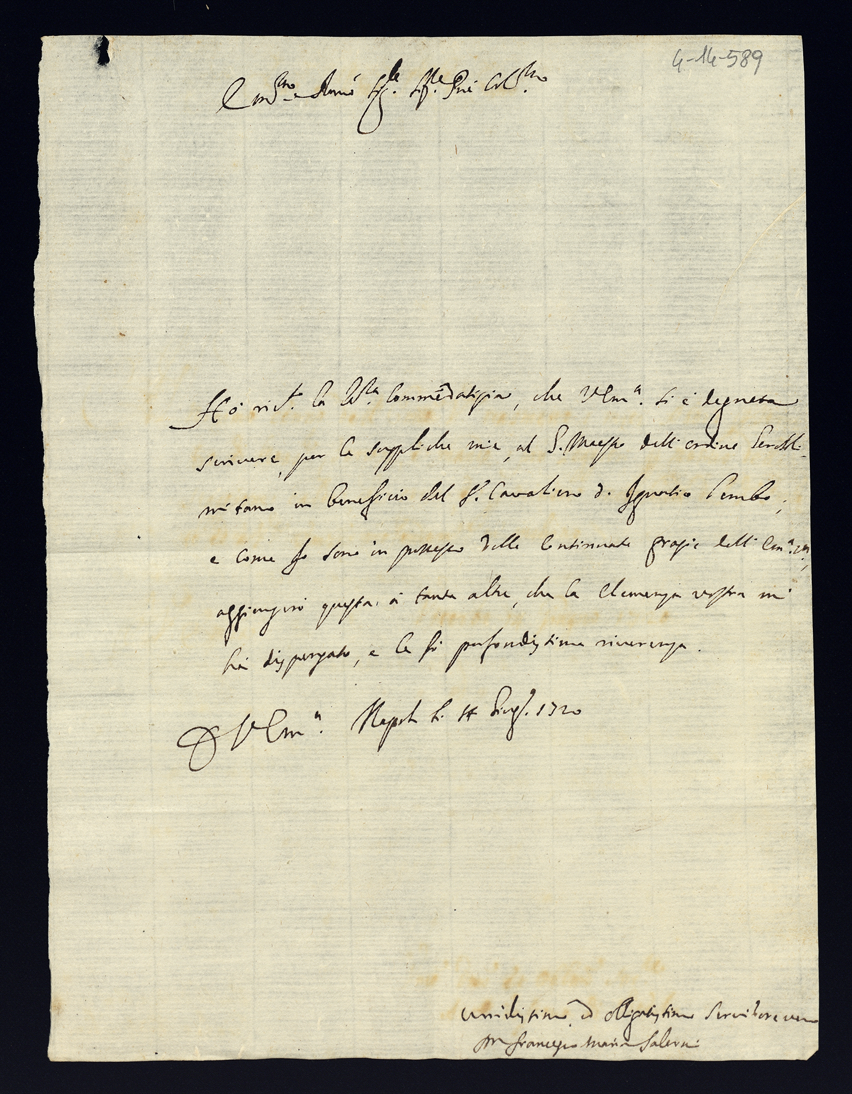 4-14-589
Em.mo e Rmo Sig.re Sig.re Pne Col.mo
Hó ric.ta la l.ra Commēdatizia, che V. Em.a si è degnata
scrivere, per le suppliche mie, al G. Maestro dell'ordine Gerosoli-
mitano in beneficio del S. Cavaliero D. Ignatio Bembo,
e come Io sono in possesso delle continuate grazie dell'Em.a V.ra,
aggiungerò questa, à tante altre, che la clemenza vostra mi
hà dispenzato, e le fò profondissima riverenza.
D. V. Em.a Napoli li 11 Giug.o 1720
umilissimo, ed obligatissimo servitore vero
fra Francesco Maria Salerni